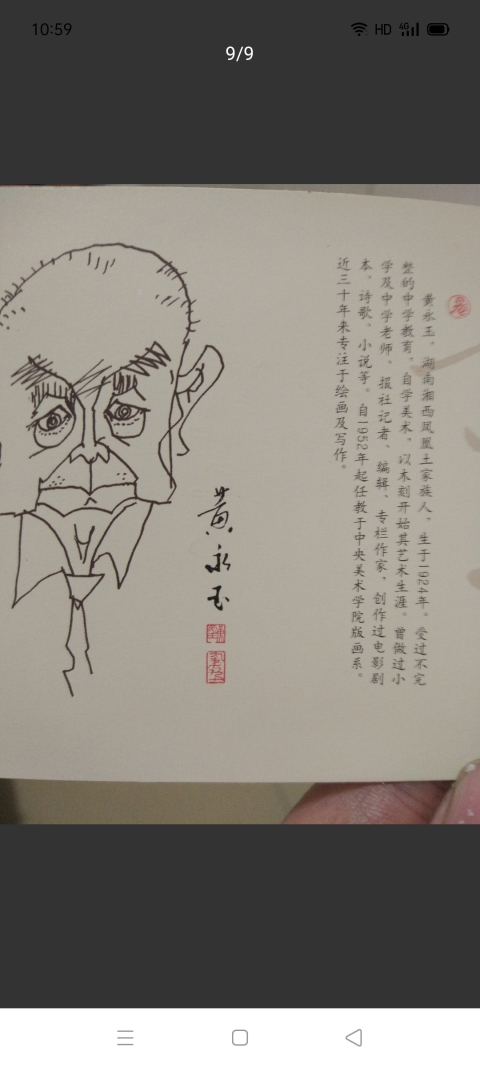 10:59
HD 4G
9/9
黄永玉，湖南湘西凤凰土家族人，生于1924年。受过不完
整的中学教育。自学美术，以木刻开始其艺术生涯。曾做过小
学及中学老师、报社记者、编辑、专栏作家，创作过电影剧
本、诗歌、小说等。自1952年起任教于中央美术学院版画系。
近三十年来专注于绘画及写作。
黄永玉